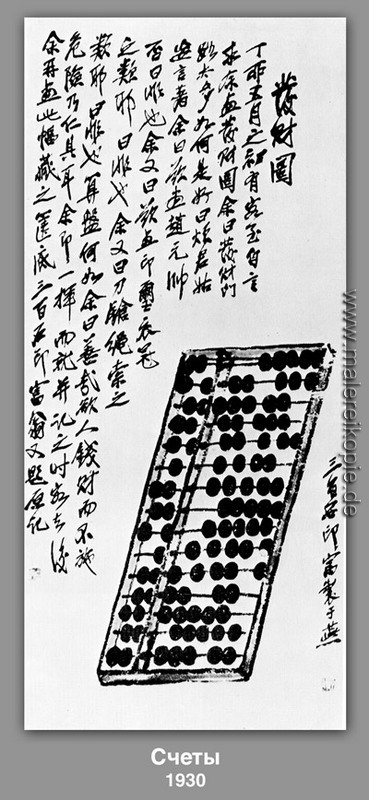 發財圖
丁卯五月之初有客至自言
求余畫發財圖余曰發財門
路太多如何是好曰煩君姑
妄言著余曰欲畫趙元帥
否曰非也余又曰欲畫印璽衣冠
之類耶曰非也余又曰刀鎗繩索之
類耶曰非也算盤何如余曰善哉欲人錢財而不施
危險乃仁具耳余即一揮而就并記之時客去後
余再畫此幅藏之篋底三百石印富翁又題原記
三百石印富製于燕
www.malereikopie.de
Счеты
1930